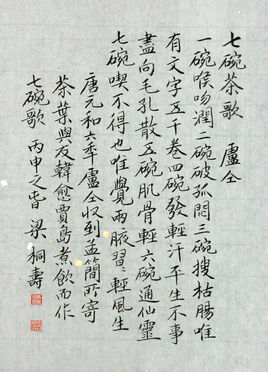 七碗茶歌 盧仝
一碗喉吻潤二碗破孤悶三碗搜枯腸唯
有文字五千卷四碗發輕汗平生不事
盡向毛孔散五碗肌骨輕六碗通仙靈
七碗喫不得也唯覺兩腋習〻輕風生
唐元和六秊盧仝收到孟簡所寄
茶葉與友韓愈賈島煮飲而作
七碗歌 丙申之 梁桐壽